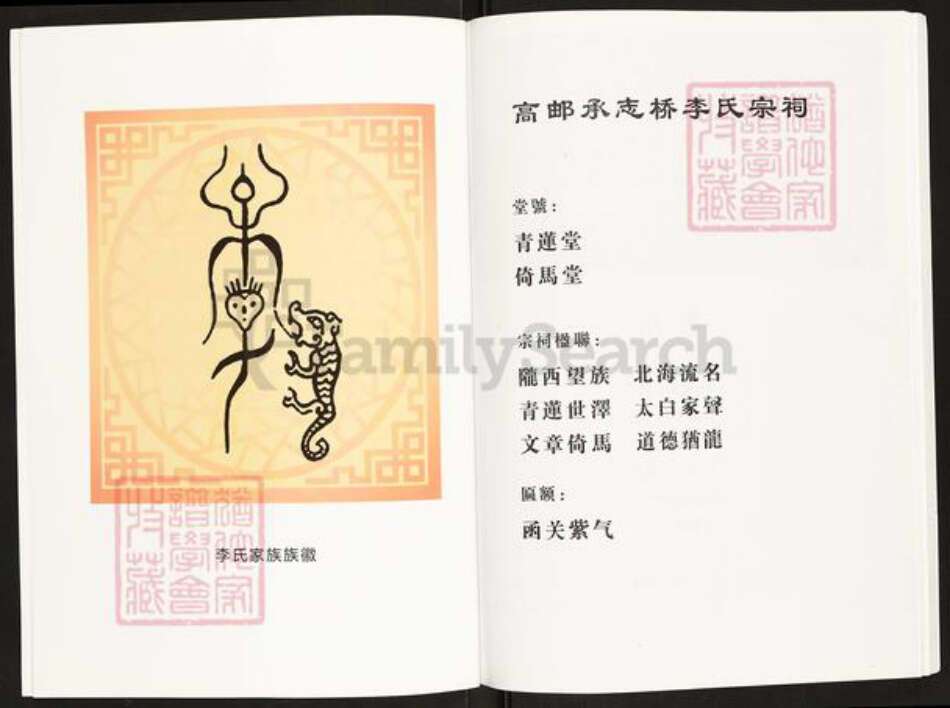 李氏家族族徽
高邮承志桥李氏宗祠
堂號：
青蓮堂
倚馬堂
宗祠楹聯：
隴西望族 北海流名
青蓮世澤 太白家聲
文章倚馬 道德猶龍
匾额：
函关紫气
FamilySearch